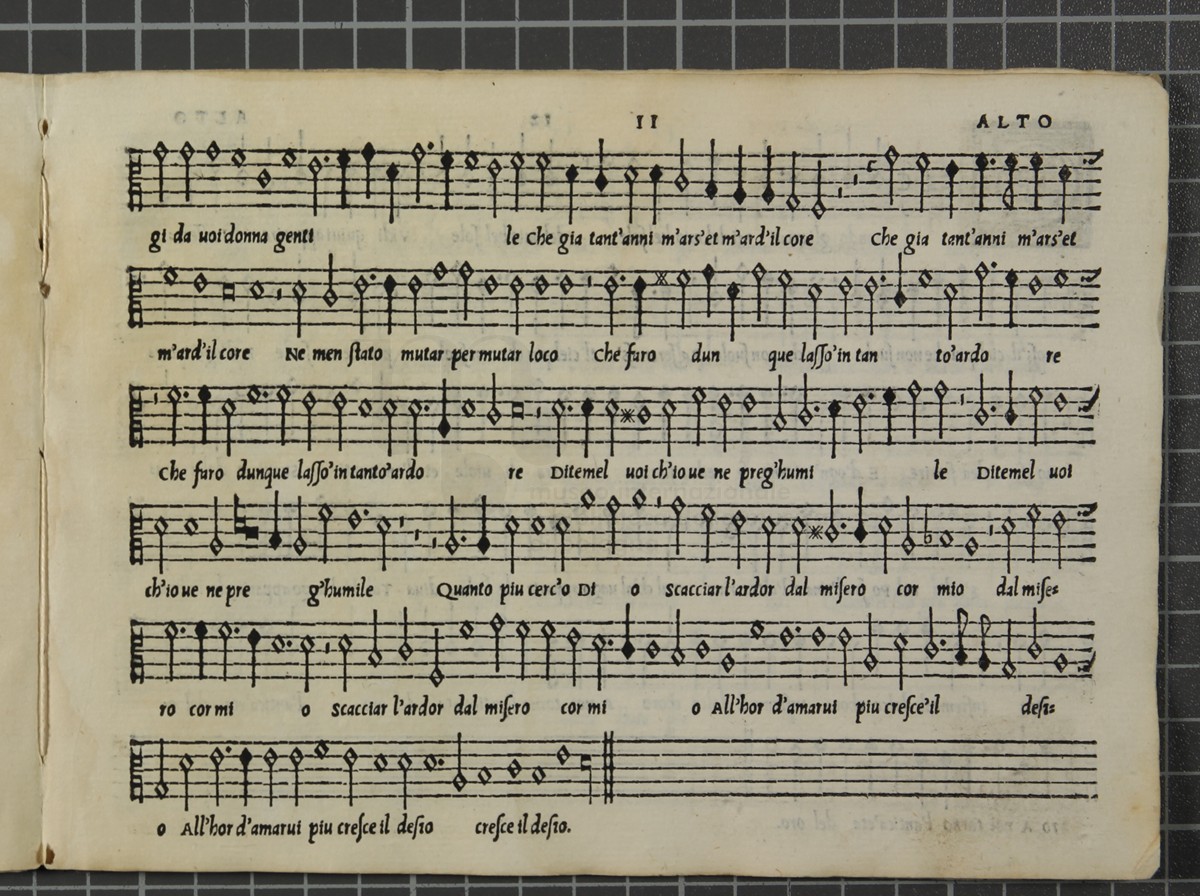 II ALTO
gi da uoi donna genti le Che gia tant'anni m'ars'et m'ard'il core Che gia tant'anni m'ars'et
m'ard'il core Ne men ſtato mutar per mutar loco Che faro dun que laſſo'in tan to'ardo re
Che faro dunque laſſo'in tanto'ardo re Ditemel uoi ch'io ue ne preg'humi le Ditemel uoi
ch'io ue ne pre g'humile Quanto piu cerc'o Di o Scacciar l'ardor dal miſero cor mio dal miſe=
ro cor mi o Scacciar l'ardor dal miſero cor mi o All'hor d'amarui piu creſce'il deſi=
o All'hor d'amarui piu creſce il deſio creſce il deſio.